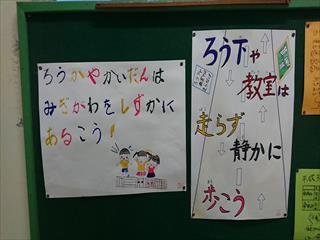 ろうかやかいだんは
みぎがわをしずかに
あるこう!
ろう下や
教室は
走らず
静かに
歩こう